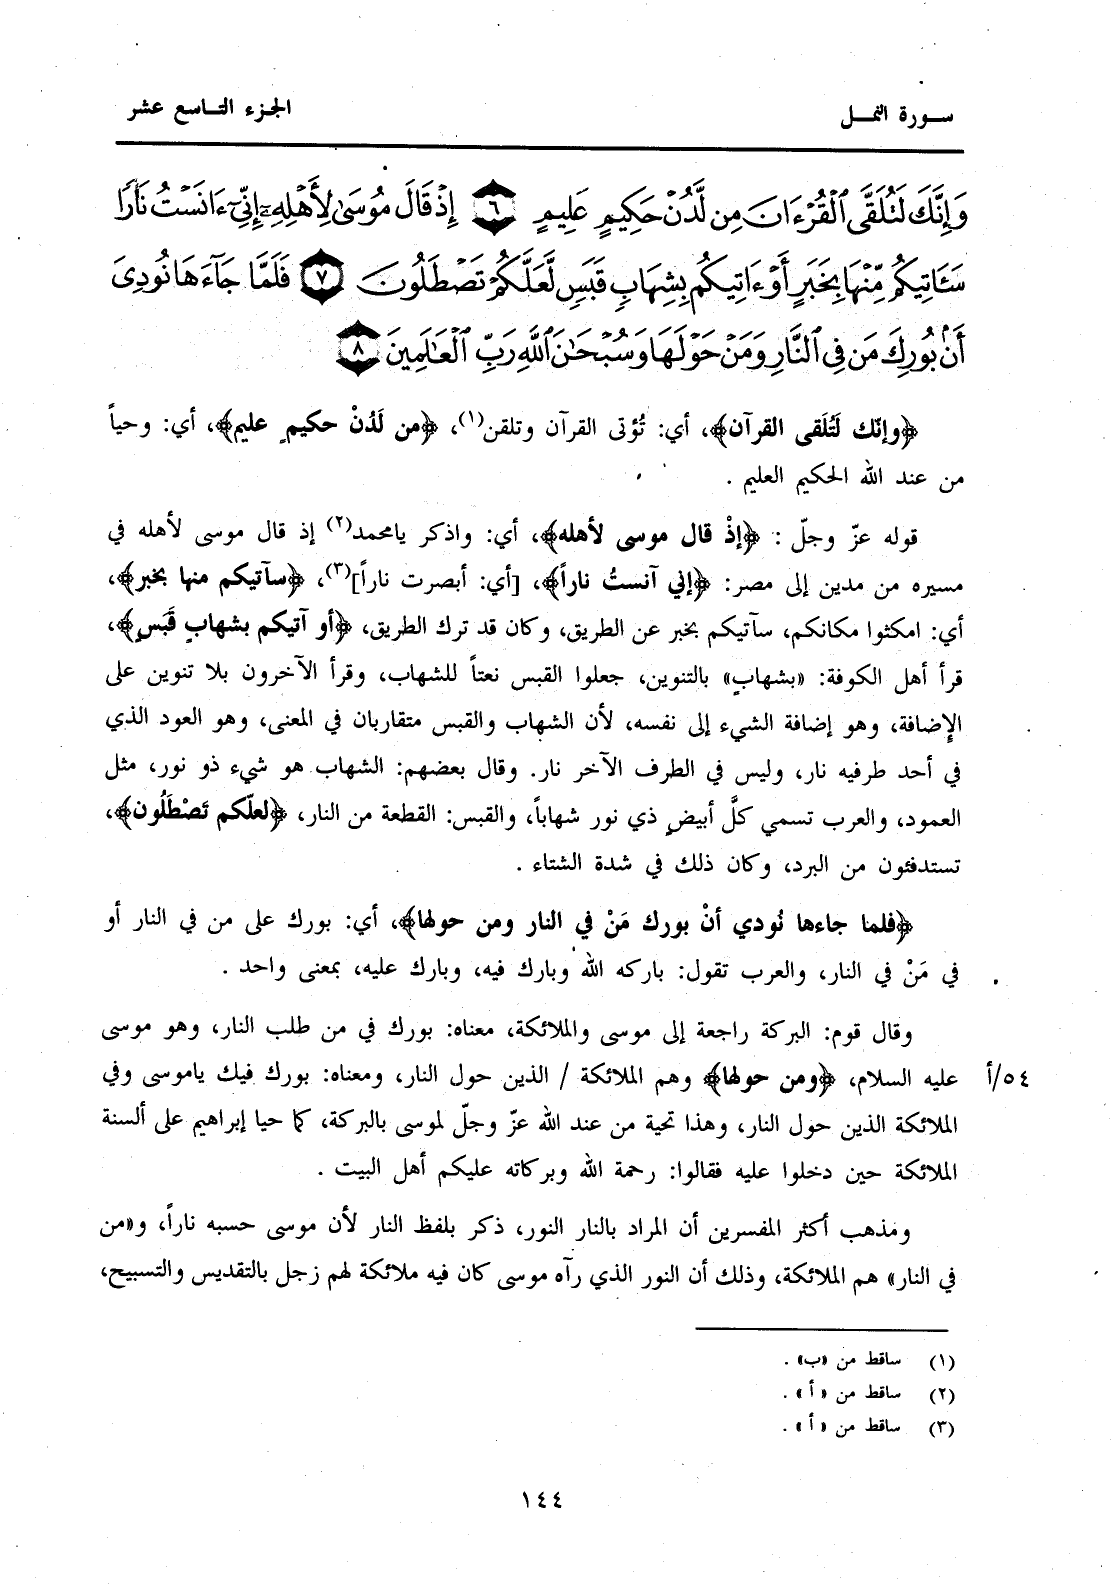 سورة النمل
الجزء التاسع عشر
وَإِنَّكَ لَتُلَقَّى ٱلْقُرْءَانَ مِن لَّدُنْ حَكِيمٍ عَلِيمٍ ٦ إِذْ قَالَ مُوسَىٰ لِأَهْلِهِۦٓ إِنِّىٓ ءَانَسْتُ نَارًا
سَـَٔاتِيكُم مِّنْهَا بِخَبَرٍ أَوْ ءَاتِيكُم بِشِهَابٍ قَبَسٍ لَّعَلَّكُمْ تَصْطَلُونَ ٧ فَلَمَّا جَآءَهَا نُودِىَ
أَنۢ بُورِكَ مَن فِى ٱلنَّارِ وَمَنْ حَوْلَهَا وَسُبْحَٰنَ ٱللَّهِ رَبِّ ٱلْعَٰلَمِينَ ٨
﴿وإنّك لَتُلَقى القرآن﴾، أي: تُؤتى القرآن وتلقن(١)، ﴿من لَدُنْ حكيمٍ عليم﴾، أي: وحياً
من عند الله الحكيم العليم .
قوله عزّ وجلّ : ﴿إذْ قال موسى لأهله﴾، أي: واذكر يامحمد(٢) إذ قال موسى لأهله في
مسيره من مدين إلى مصر: ﴿إني آنستُ ناراً﴾، [أي: أبصرت ناراً](٣)، ﴿سآتيكم منها بخبر﴾،
أي: امكثوا مكانكم، سآتيكم بخبر عن الطريق، وكان قد ترك الطريق، ﴿أو آتيكم بشهابٍ قَبَسٍ﴾،
قرأ أهل الكوفة: «بشهابٍ» بالتنوين، جعلوا القبس نعتاً للشهاب، وقرأ الآخرون بلا تنوين على
الإضافة، وهو إضافة الشيء إلى نفسه، لأن الشهاب والقبس متقاربان في المعنى، وهو العود الذي
في أحد طرفيه نار، وليس في الطرف الآخر نار. وقال بعضهم: الشهاب هو شيء ذو نور، مثل
العمود، والعرب تسمي كلَّ أبيضٍ ذي نور شهاباً، والقبس: القطعة من النار، ﴿لعلّكم تَصْطَلُون﴾،
تستدفئون من البرد، وكان ذلك في شدة الشتاء .
﴿فلما جاءها نُودي أنْ بورك مَنْ في النار ومن حولها﴾، أي: بورك على من في النار أو
في مَنْ في النار، والعرب تقول: باركه الله وبارك فيه، وبارك عليه، بمعنى واحد .
وقال قوم: البركة راجعة إلى موسى والملائكة، معناه: بورك في من طلب النار، وهو موسى
عليه السلام، ﴿ومن حولها﴾ وهم الملائكة / الذين حول النار، ومعناه: بورك فيك ياموسى وفي
٥٤/أ
الملائكة الذين حول النار، وهذا تحية من عند الله عزّ وجلّ لموسى بالبركة، كما حيا إبراهيم على ألسنة
الملائكة حين دخلوا عليه فقالوا: رحمة الله وبركاته عليكم أهل البيت .
ومذهب أكثر المفسرين أن المراد بالنار النور، ذكر بلفظ النار لأن موسى حسبه ناراً، و«من
في النار» هم الملائكة، وذلك أن النور الذي رآه موسى كان فيه ملائكة لهم زجل بالتقديس والتسبيح،
(١) ساقط من «ب» .
(٢) ساقط من «أ» .
(٣) ساقط من «أ» .
١٤٤